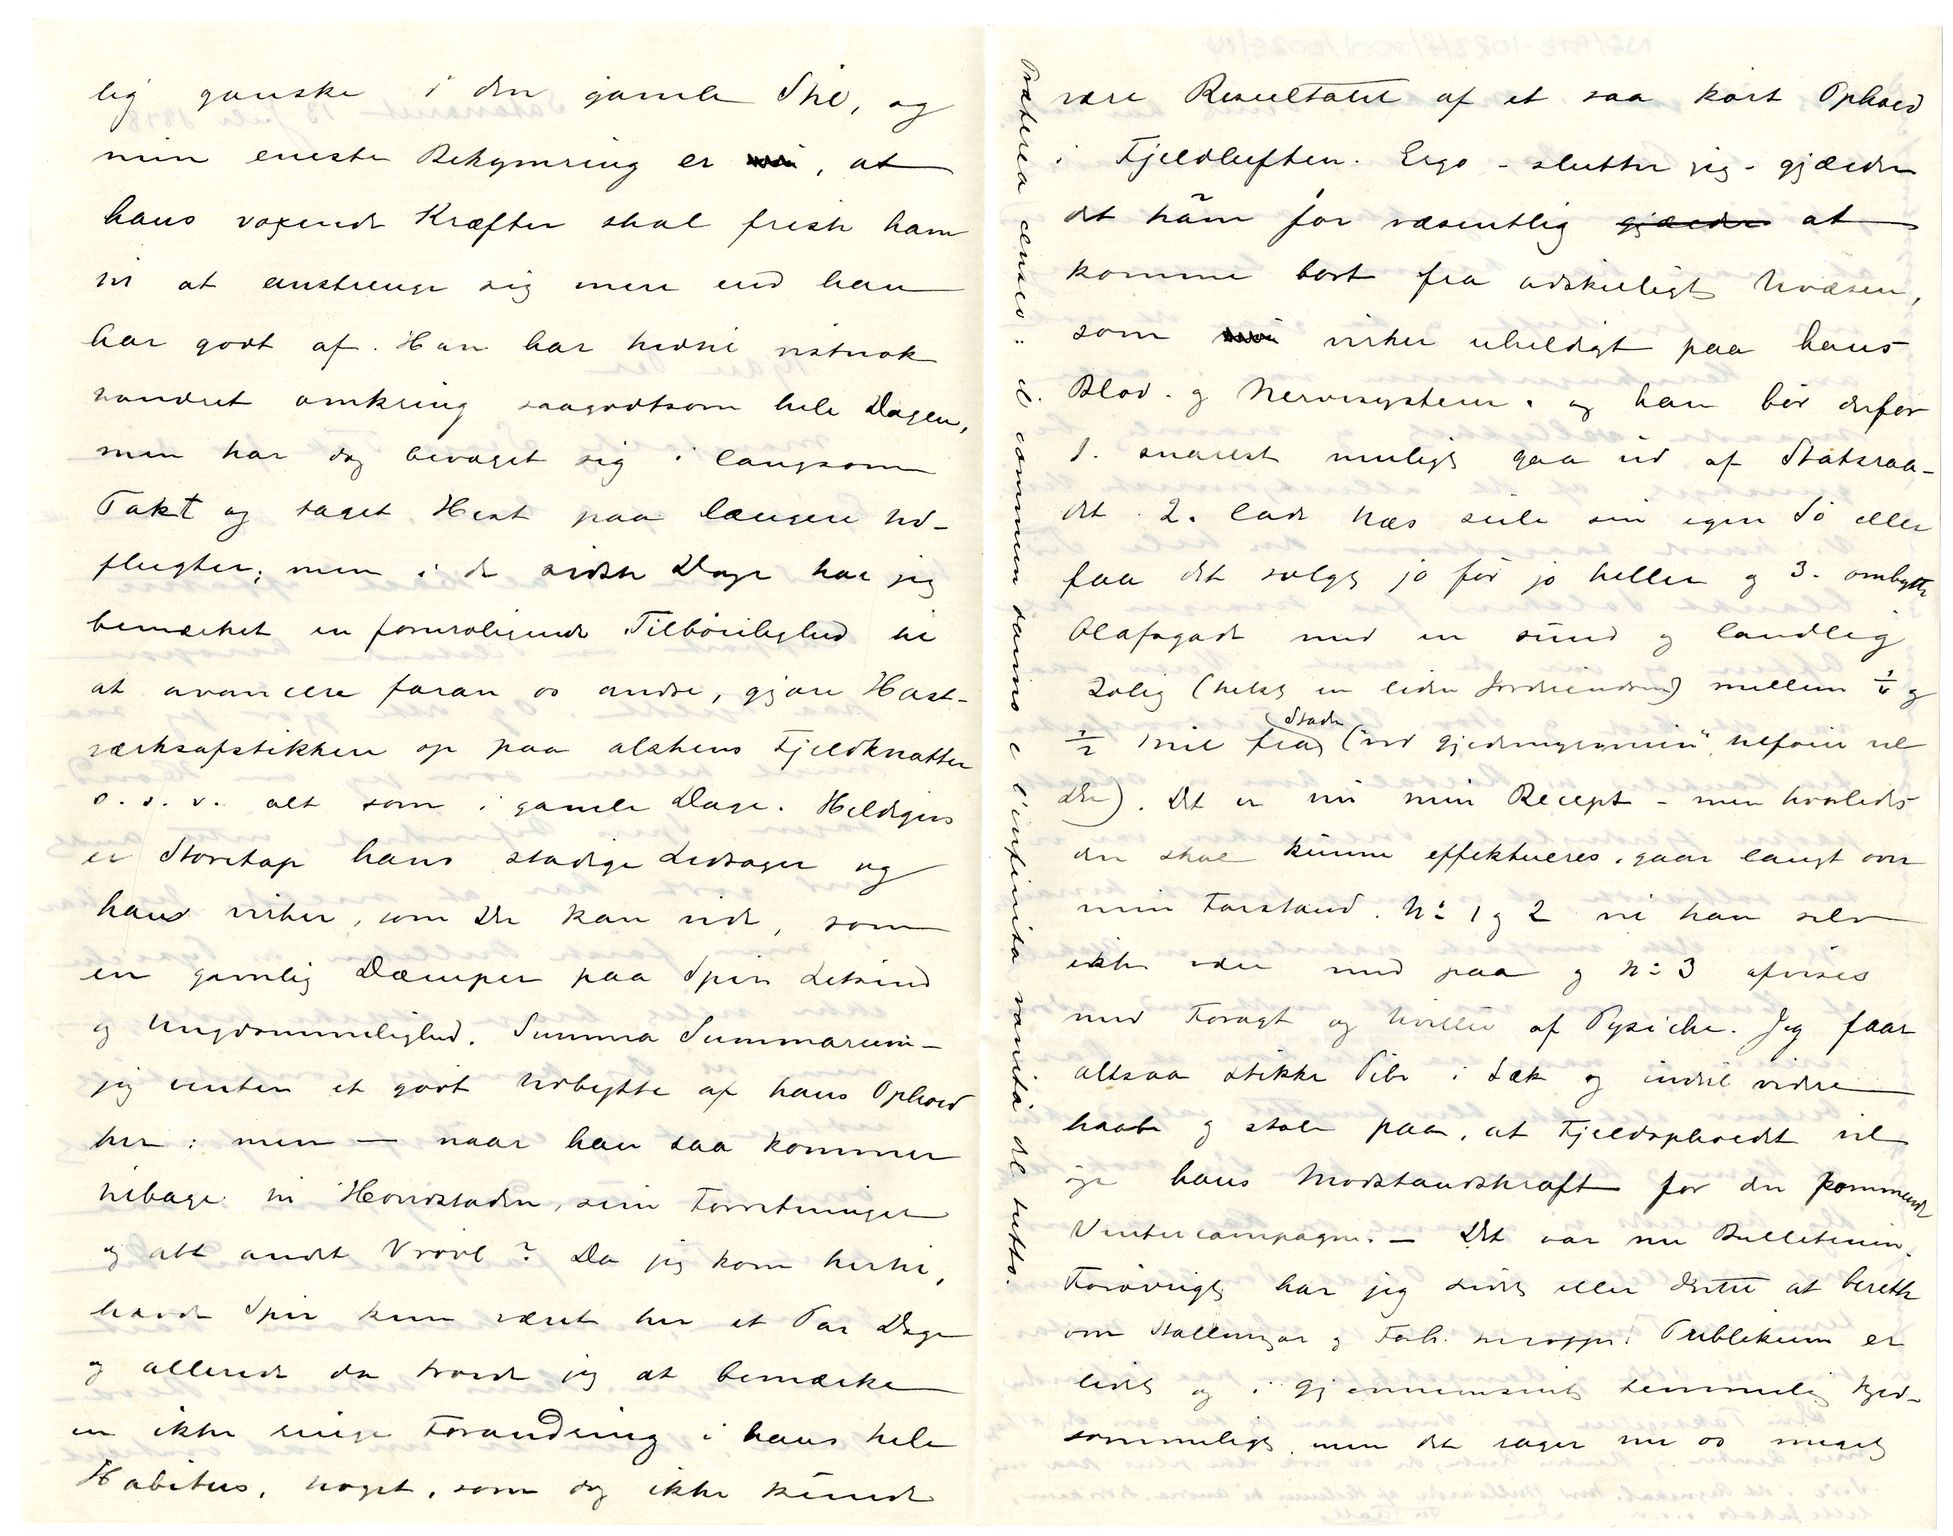 lig ganske i den gamle Stil, og
min eneste Bekymring er , at
hans voxende Kræfter skal friste ham
til at anstrenge sig mere end han
har godt af. Han har hidtil vistnok
vandret omkring saagodtsom hele Dagen,
men har dog bevæget sig i langsom
Takt og taget Hest paa længere Ud-
flugter; men i de sidste Dage har jeg
bemærket en foruroligende Tilbøielighed til
at avancere foran os andre, gjøre Hast-
værksafstikkere op paa alskens Fjeldknatter
o.s.v. alt som i gamle Dage. Heldigvis
er Storetap hans stadige Ledsager og
hans virker, som De kan vide, som
en gavnlig Dæmper paa Spirs Letsind
og Ungdommelighed. Summa Summarum –
jeg venter et godt Udbytte af hans Ophold
her: men — naar han saa kommer
tilbage til Hovedstaden, sine Forretninger
og alt andet Vrøvl? Da jeg kom hertil,
havde Spir kun været her et Par Dage
og allerede da troede jeg at bemærke
en ikke ringe Forandring i hans hele
Habitus, noget, som dog ikke kunde
være Resultatet af et saa kort Ophold
i Fjeldluften. Ergo – slutter jeg – gjælder
det ham for væsentlig gjælder at
komme bort fra adskilligt Uvæsen,
som virker uheldigt paa hans
Blod- og Nervesystem. og han bør derfor
1. snarest muligt gaa ud af Statsraa-
det 2. lade Næs seile sin egen Sø eller
faa det solgt jo før jo heller og 3. ombytte
Olafsgade med en sund og landlig
Bolig (helst en liden Jordeiendom) mellem 1/4 og
1/2 Mil fra Staden (ved , tilføier vel
De). Det er nu min Recept – men hvorledes
den skal kunne effektueres, gaar langt over
min Forstand. No 1 og 2 vil han selv
ikke være med paa og No 3 afvises
med Foragt og Uvillie af Psyche. Jeg faar
altsaa stikke Pibe i Sæk og indtil videre
haabe og stole paa, at Fjeldopholdet vil
øge hans Modstandskraft for den kommende
Vintercampagne. — Det var nu Bulletinen.
Forøvrigt har jeg lidet eller intet at berette
om Stallningar og Förh. heroppe: Publikum er
lidet og i Gjennemsnit temmelig kjed-
sommeligt, men det rager nu os meget
Præterea censeo: il commun danno e l'infinita vanità del tutto.